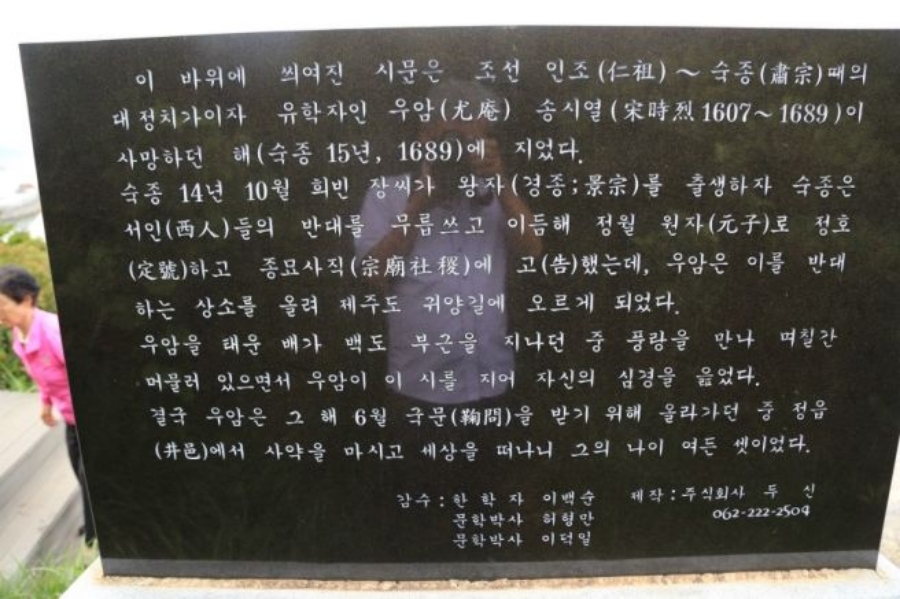 이 바위에 씌여진 시문은 조선 인조(仁祖) ~ 숙종(肅宗)때의
대정치가이자 유학자인 우암(尤庵) 송시열(宋時烈 1607~1689)이
사망하던 해(숙종 15년, 1689)에 지었다.
숙종 14년 10월 희빈 장씨가 왕자(경종;景宗)를 출생하자 숙종은
서인(西人)들의 반대를 무릅쓰고 이듬해 정월 원자(元子)로 정호
(定號)하고 종묘사직(宗廟社稷)에 고(告)했는데, 우암은 이를 반대
하는 상소를 올려 제주도 귀양길에 오르게 되었다.
우암을 태운 배가 백도 부근을 지나던 중 풍랑을 만나 며칠간
머물러 있으면서 우암이 이 시를 지어 자신의 심경을 읊었다.
결국 우암은 그 해 6월 국문(鞠問)을 받기 위해 올라가던 중 정읍
(井邑)에서 사약을 마시고 세상을 떠나니 그의 나이 여든 셋이었다.
감수 : 한 학 자 이백순 제작 : 주식회사 두 신
문학박사 허형만 062-222-2504
문학박사 이덕일